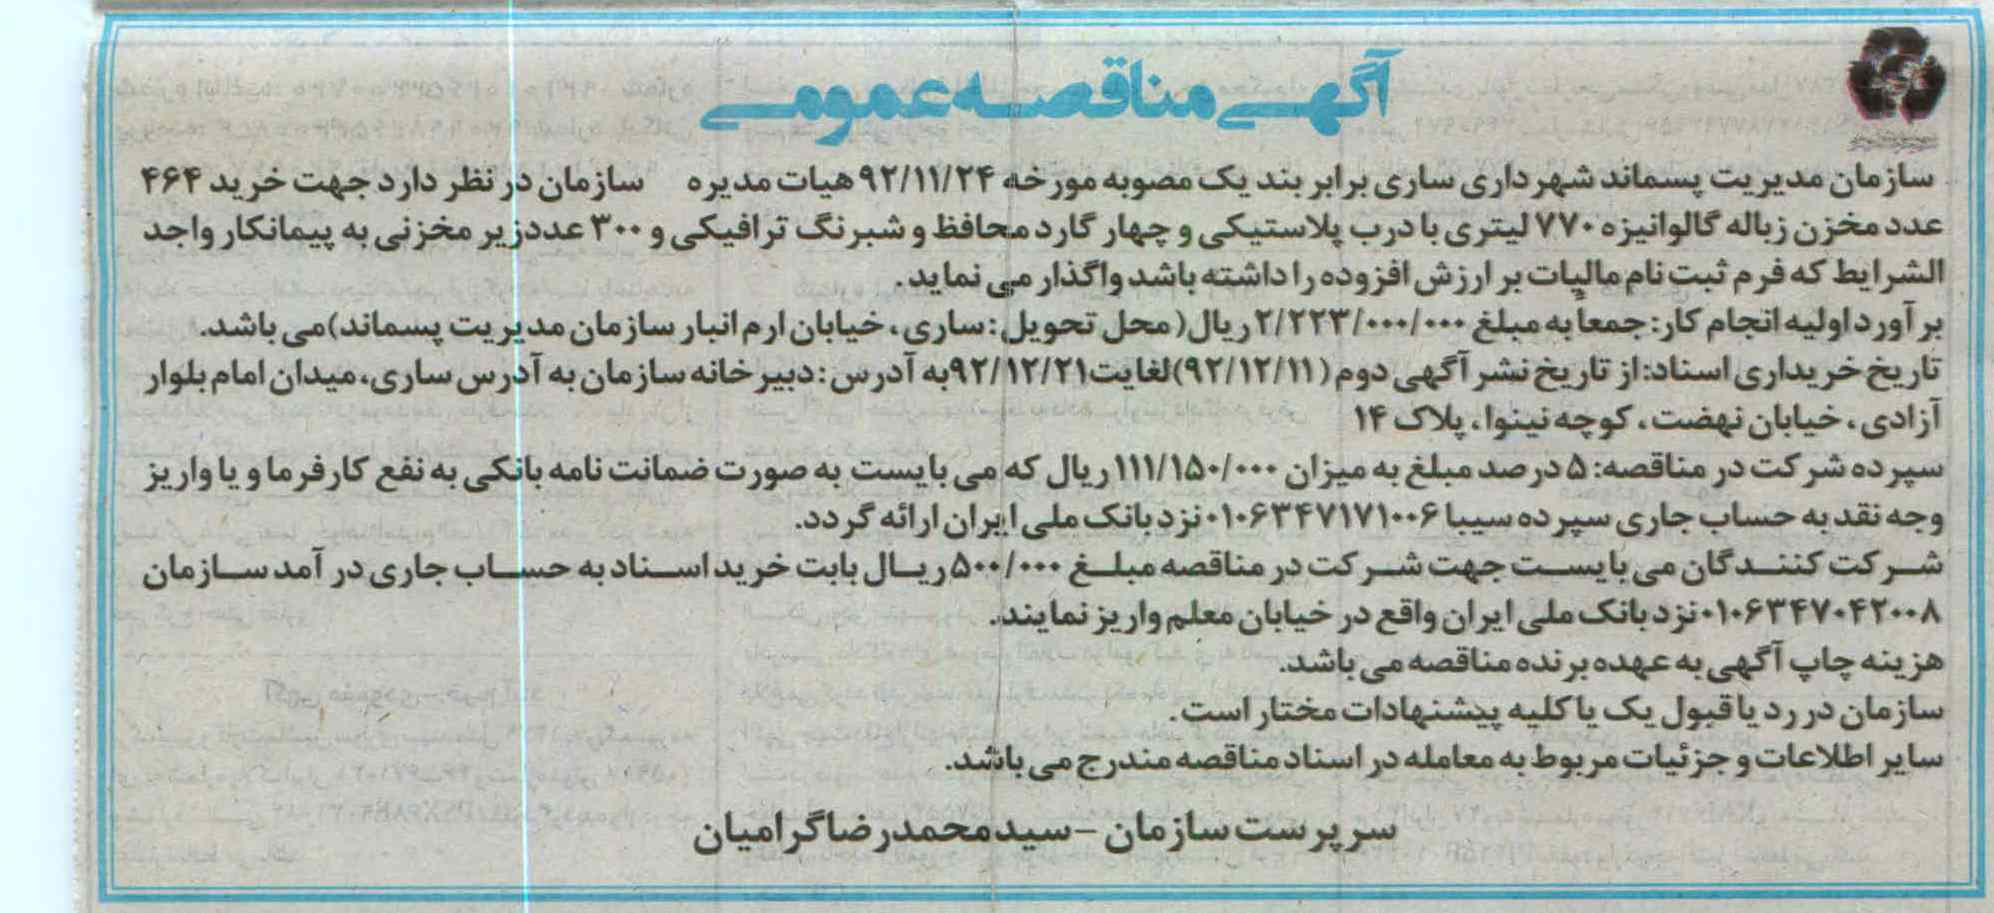 آگهی مناقصه عمومی
سازمان مدیریت پسماند شهرداری ساری برابر بند یک مصوبه مورخه ۹۲/۱۱/۲۴ هیات مدیره سازمان در نظر دارد جهت خرید ۴۶۴
عدد مخزن زباله گالوانیزه ۷۷۰ لیتری با درب پلاستیکی و چهار گارد محافظ و شبرنگ ترافیکی و ۳۰۰ عدد زیر مخزنی به پیمانکار واجد
الشرایط که فرم ثبت نام مالیات بر ارزش افزوده را داشته باشد واگذار می نماید.
برآورد اولیه انجام کار: جمعاً به مبلغ ۲/۲۲۳/۰۰۰/۰۰۰ ریال( محل تحویل: ساری، خیابان ارم انبار سازمان مدیریت پسماند)می باشد.
تاریخ خریداری اسناد: از تاریخ نشر آگهی دوم (۹۲/۱۲/۱۱)لغایت۹۲/۱۲/۲۱به آدرس: دبیرخانه سازمان به آدرس ساری، میدان امام بلوار
آزادی، خیابان نهضت، کوچه نینوا، پلاک ۱۴
سپرده شرکت در مناقصه: ۵ درصد مبلغ به میزان ۱۱۱/۱۵۰/۰۰۰ ریال که می بایست به صورت ضمانت نامه بانکی به نفع کارفرما و یا واریز
وجه نقد به حساب جاری سپرده سیبا ۰۱۰۶۳۴۷۱۷۱۰۰۶ نزد بانک ملی ایران ارائه گردد.
شرکت کنندگان می بایست جهت شرکت در مناقصه مبلغ ۵۰۰/۰۰۰ ریال بابت خرید اسناد به حساب جاری درآمد سازمان
۰۱۰۶۳۴۷۰۴۲۰۰۸ نزد بانک ملی ایران واقع در خیابان معلم واریز نمایند.
هزینه چاپ آگهی به عهده برنده مناقصه می باشد.
سازمان در رد یا قبول یک یا کلیه پیشنهادات مختار است.
سایر اطلاعات و جزئیات مربوط به معامله در اسناد مناقصه مندرج می باشد.
سرپرست سازمان - سیدمحمدرضا گرامیان